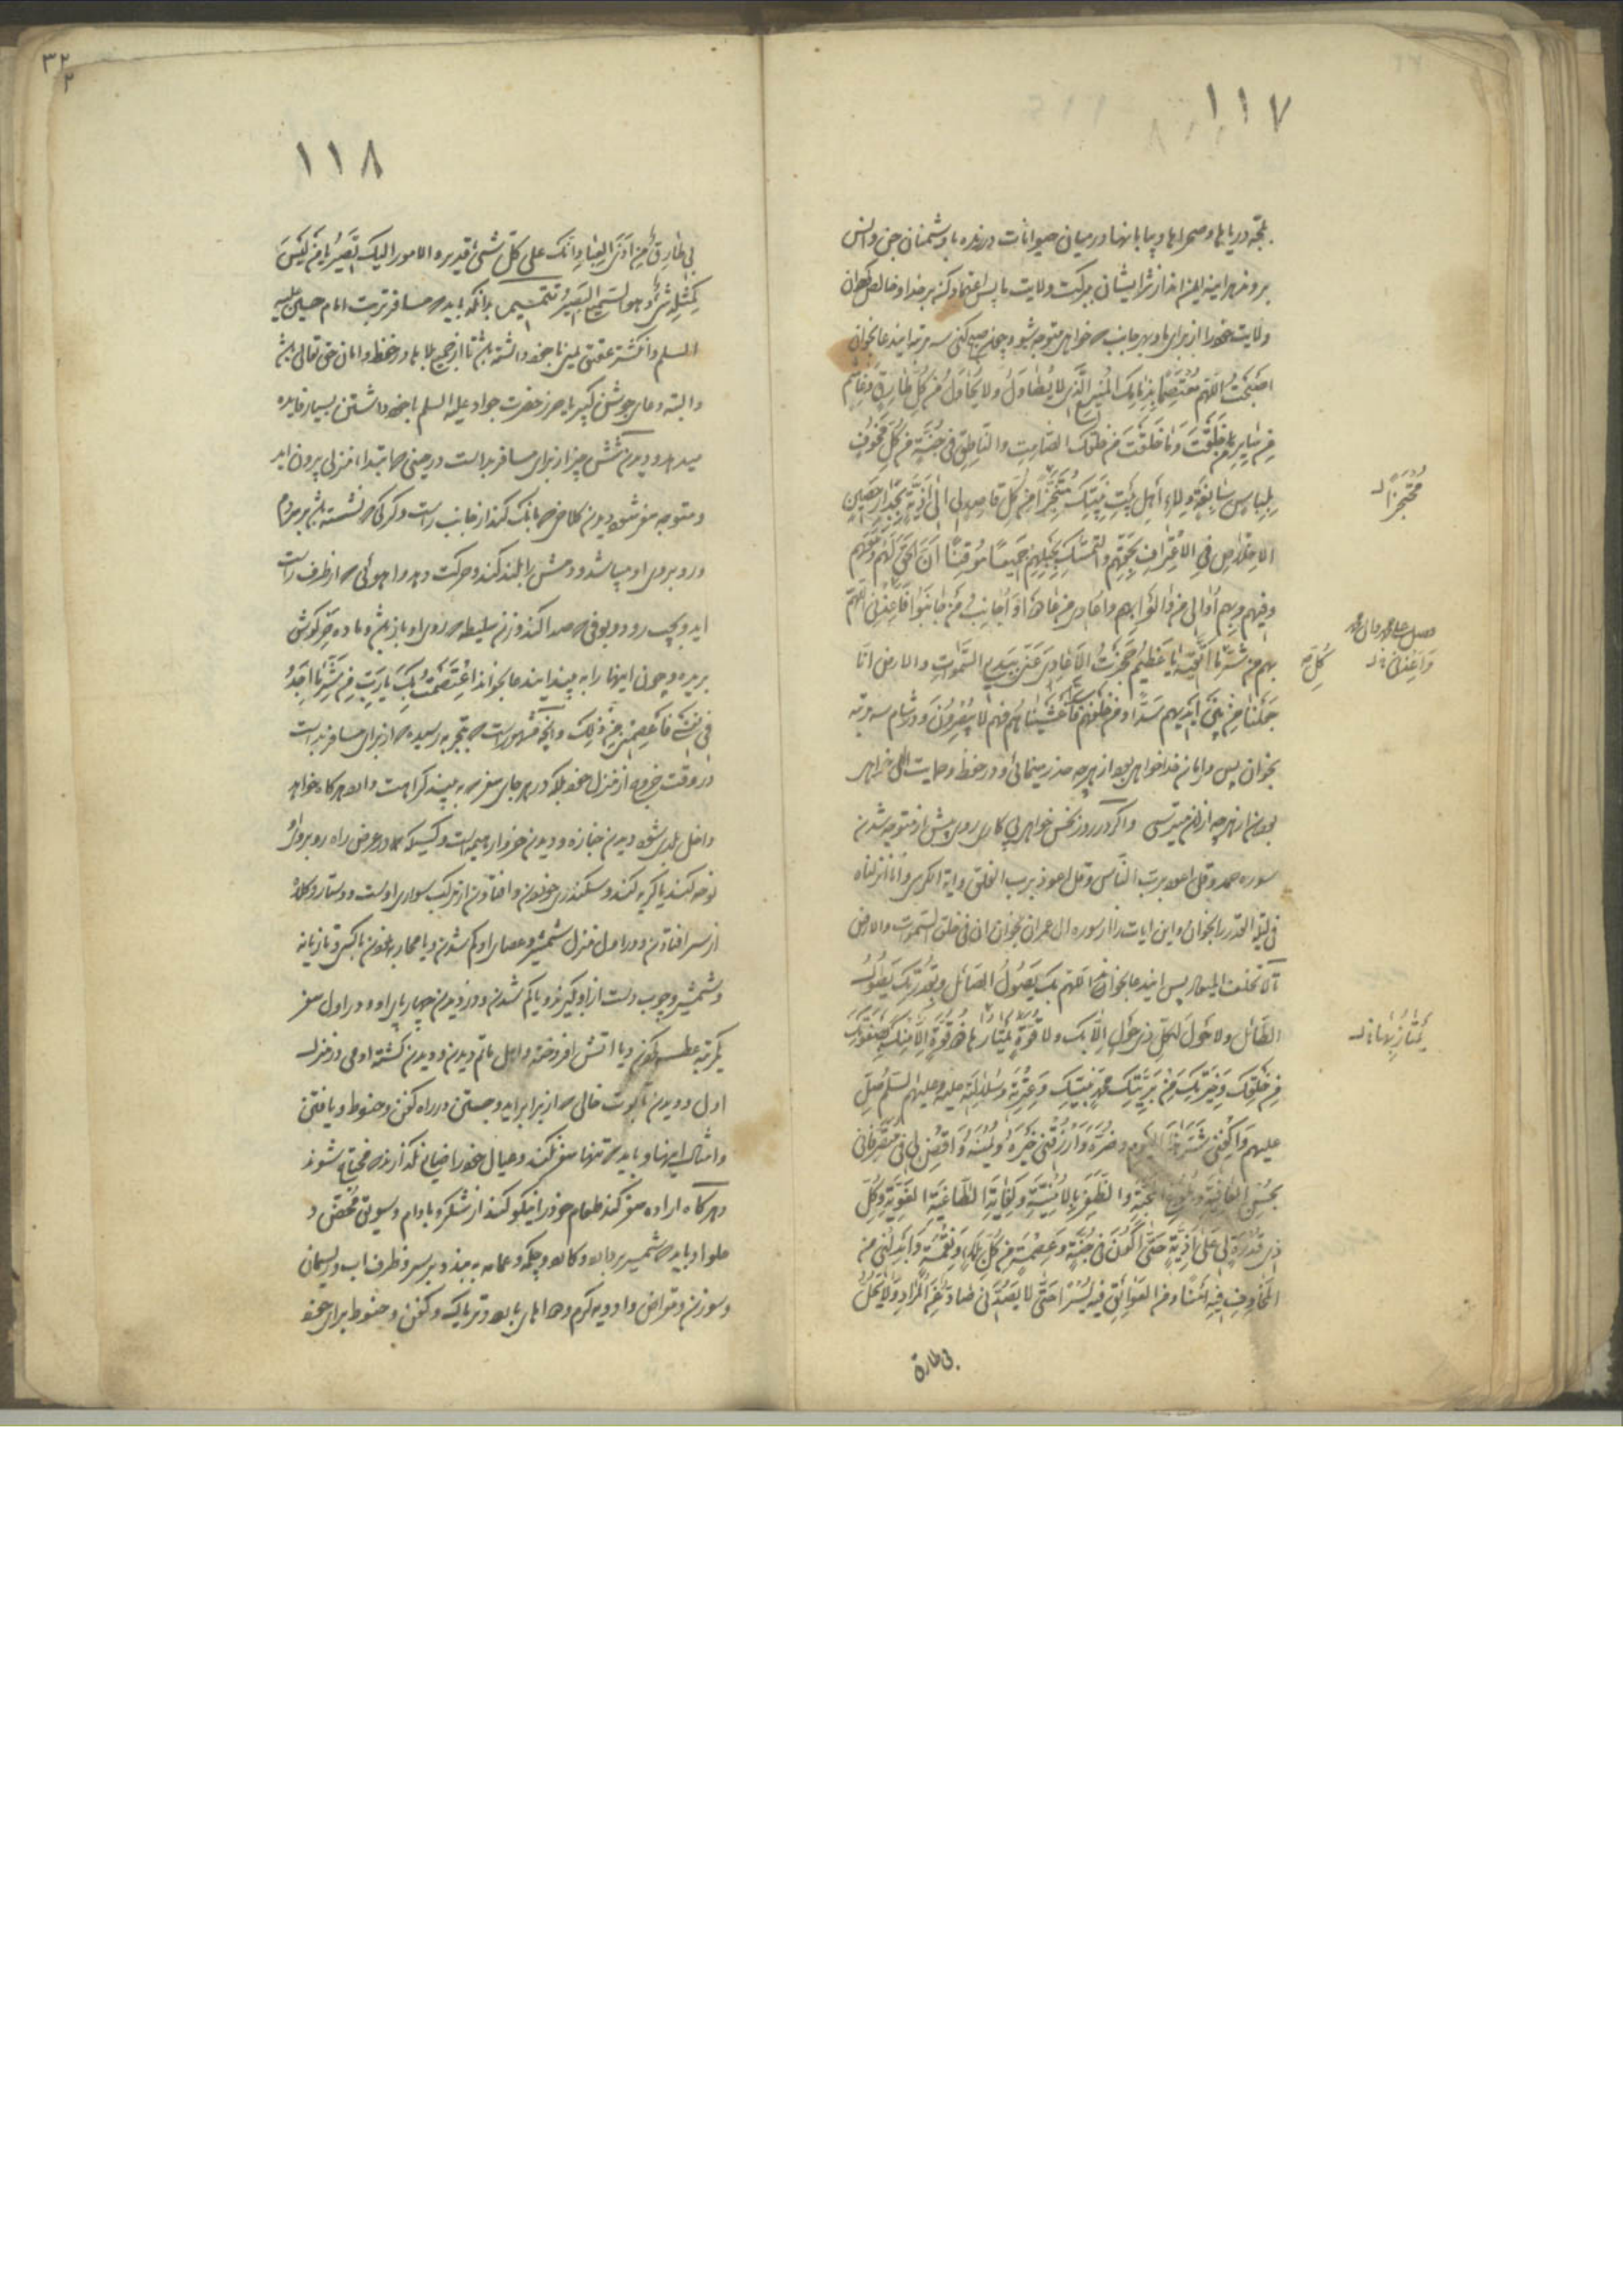 ١١٧
لجه دریاها و صحراها و بیابانها و در میان حیوانات درنده با دشمنان جن و انس
بروند هر اینه ایمن اند از شر ایشان ببرکت ولایت ما پس اعتماد کن بر خدا و خالص گردان
ولایت خود را از برای ما و بهر جانب که خواهی متوجه شو و چون صبح کنی سه مرتبه ایندعا بخوان
اصبحت اللهم معتصما بذمامک المنیع الذی لا یطاول ولا یحاول من کل طارق و غاشم
من سایر من خلقت و ما خلقت من خلقک الصامت والناطق فی جنة من کل مخوف
بلباس سابغة ولاء اهل بیت نبیک محتجزا من کل قاصد لی الی اذیة بجدار حصین
الاخلاص فی الاعتراف بحقهم والتمسک بحبلهم جمیعا موقنا ان الحق لهم و معهم
وفیهم وبهم اوالی من والوا بهم واعادی من عادوا واجانب من جانبوا فاعذنی اللهم
بهم من شر ما اتقیه یا عظیم حجزت الاعادی عنی ببدیع السموات والارض انا
جعلنا من بین ایدیهم سدا ومن خلفهم سدا فاغشیناهم فهم لا یبصرون و در شام سه مرتبه
بخوان پس در امان خدا خواهی بود از هر چه حذر مینمائی و در حفظ و حمایت الهی خواهی
بود از هر چه از ان میترسی و اگر در روز نحس خواهی پی کاری روی پیش از متوجه شدن
سوره حمد و قل اعوذ برب الناس و قل اعوذ برب الفلق و ایة الکرسی و انا انزلناه
فی لیلة القدر را بخوان و این ایات را از سوره ال عمران بخوان ان فی خلق السموات والارض
تا لا تخلف المیعاد پس ایندعا بخوان اللهم بک یصول الصائل و بقدرتک یطول
الطائل ولا حول لکل ذی حول الا بک ولا قوة یمتارها ذو قوة الا منک بصفوتک
من خلقک وخیرتک من بریتک محمد نبیک وعترته وسلالته علیه وعلیهم السلم صل
علیهم واکفنی شر هذا الیوم وضره وارزقنی خیره ویمنه واقض لی فی متصرفاتی
بحسن العافیة وبلوغ المحبة والظفر بالامنیة وکفایة الطاغیة الغویة وکل
ذی قدرة لی علی اذیة حتی اکون فی جنة وعصمة من کل بلاء ونقمة وابدلنی من
المخاوف فیه امنا ومن العوائق فیه یسرا حتی لا یصدنی صاد عن المراد ولا یحل
بی طارق
محتجزا
وصل علی محمد وال محمد
واعذنی
کل
یمتازها
٣٢
٢
١١٨
بی طارق من اذی العباد انک علی کل شیء قدیر والامور الیک تصیر یا من لیس
کمثله شیء وهو السمیع البصیر تتمیم بدانکه باید که مسافر تربت امام حسین علیه
السلم و انگشتر عقیق یمنی با خود داشته باشد تا از جمیع بلاها در حفظ و امان حق تعالی باشد
والبته دعای جوشن کبیر یا حرز حضرت جواد علیه السلم با خود داشتن بسیار فایده
میدهد و دیدن شش چیز از برای مسافر بد است در حینی که ابتدا از منزل بیرون اید
و متوجه سفر شود دیدن کلاغی که بانک کند از جانب راست و گرگی که نشسته باشد بر دم
و رو بروی او باشد و دمش را بلند کند و حرکت دهد و اهوئی که از طرف راست
اید و بچپ رود و بومی که صدا کند و زن سلیطه که روی او باز باشد و ماده خر گوش
بریده و چون اینها را به بیند ایندعا بخواند اعتصمت بک یا رب من شر ما اجد
فی نفسی فاعصمنی من ذلک و انچه مشهور است که بتجربه رسیده که از برای مسافر بد است
در وقت خروج از منزل خود بلکه در هر جای سفر که به بیند کراهت دارد هر گاه خواهد
داخل بلدی شود دیدن جنازه و دیدن خروار هیمه است و کسیکه در عرض راه رو بروی او
نوحه کند یا گریه کند و سکندری خوردن و افتادن از مرکب سواری اوست و دستار و کلاه
از سر افتادن و در اول منزل شمشیر و عصای او گم شدن و یا مجادله نمودن با کسی و تازیانه
و شمشیر و چوب دست از او گیرند و یا گم شدن و دزدیدن چهار پای او و در اول سفر
یکمرتبه عطسه کردن و یا اتش افروخته و اهل ماتم دیدن و دیدن کشته ادمی در منزل
اول و دیدن تابوت خالی که از برابر اید و جستن در راه کفن و حنوط و یافتن
و امثال اینها و باید که تنها سفر نکند و عیال خود را ضایع نگذارد که محتاج شوند
و هر گاه اراده سفر کند طعام خود را نیکو کند از شکر و بادام و سویق محمص و
حلوا و باید که شمشیر بردارد و کمان و چکمه و عمامه به بندد بر سر و ظرف اب و ریسمان
و سوزن و مقراض و ادویه گرم و دواهای بارد و تریاک و کفن و حنوط برای خود